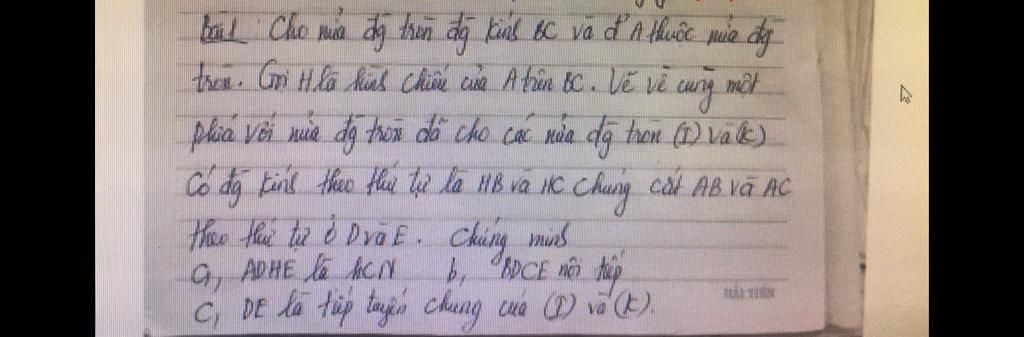 bài 1 Cho nửa đg tròn đg kính BC và đ' A thuộc nửa đg
tròn. Gọi H là hình chiếu của A trên BC. Vẽ về cùng một
phía với nửa đg tròn đã cho các nửa đg tròn (I) và (K)
Có đg kính theo thứ tự là HB và HC chúng cắt AB và AC
theo thứ tự ở D và E. Chứng minh
a, ADHE là hCN b, BDCE nội tiếp
C, DE là tiếp tuyến chung của (I) và (K).
HẢI TIẾN